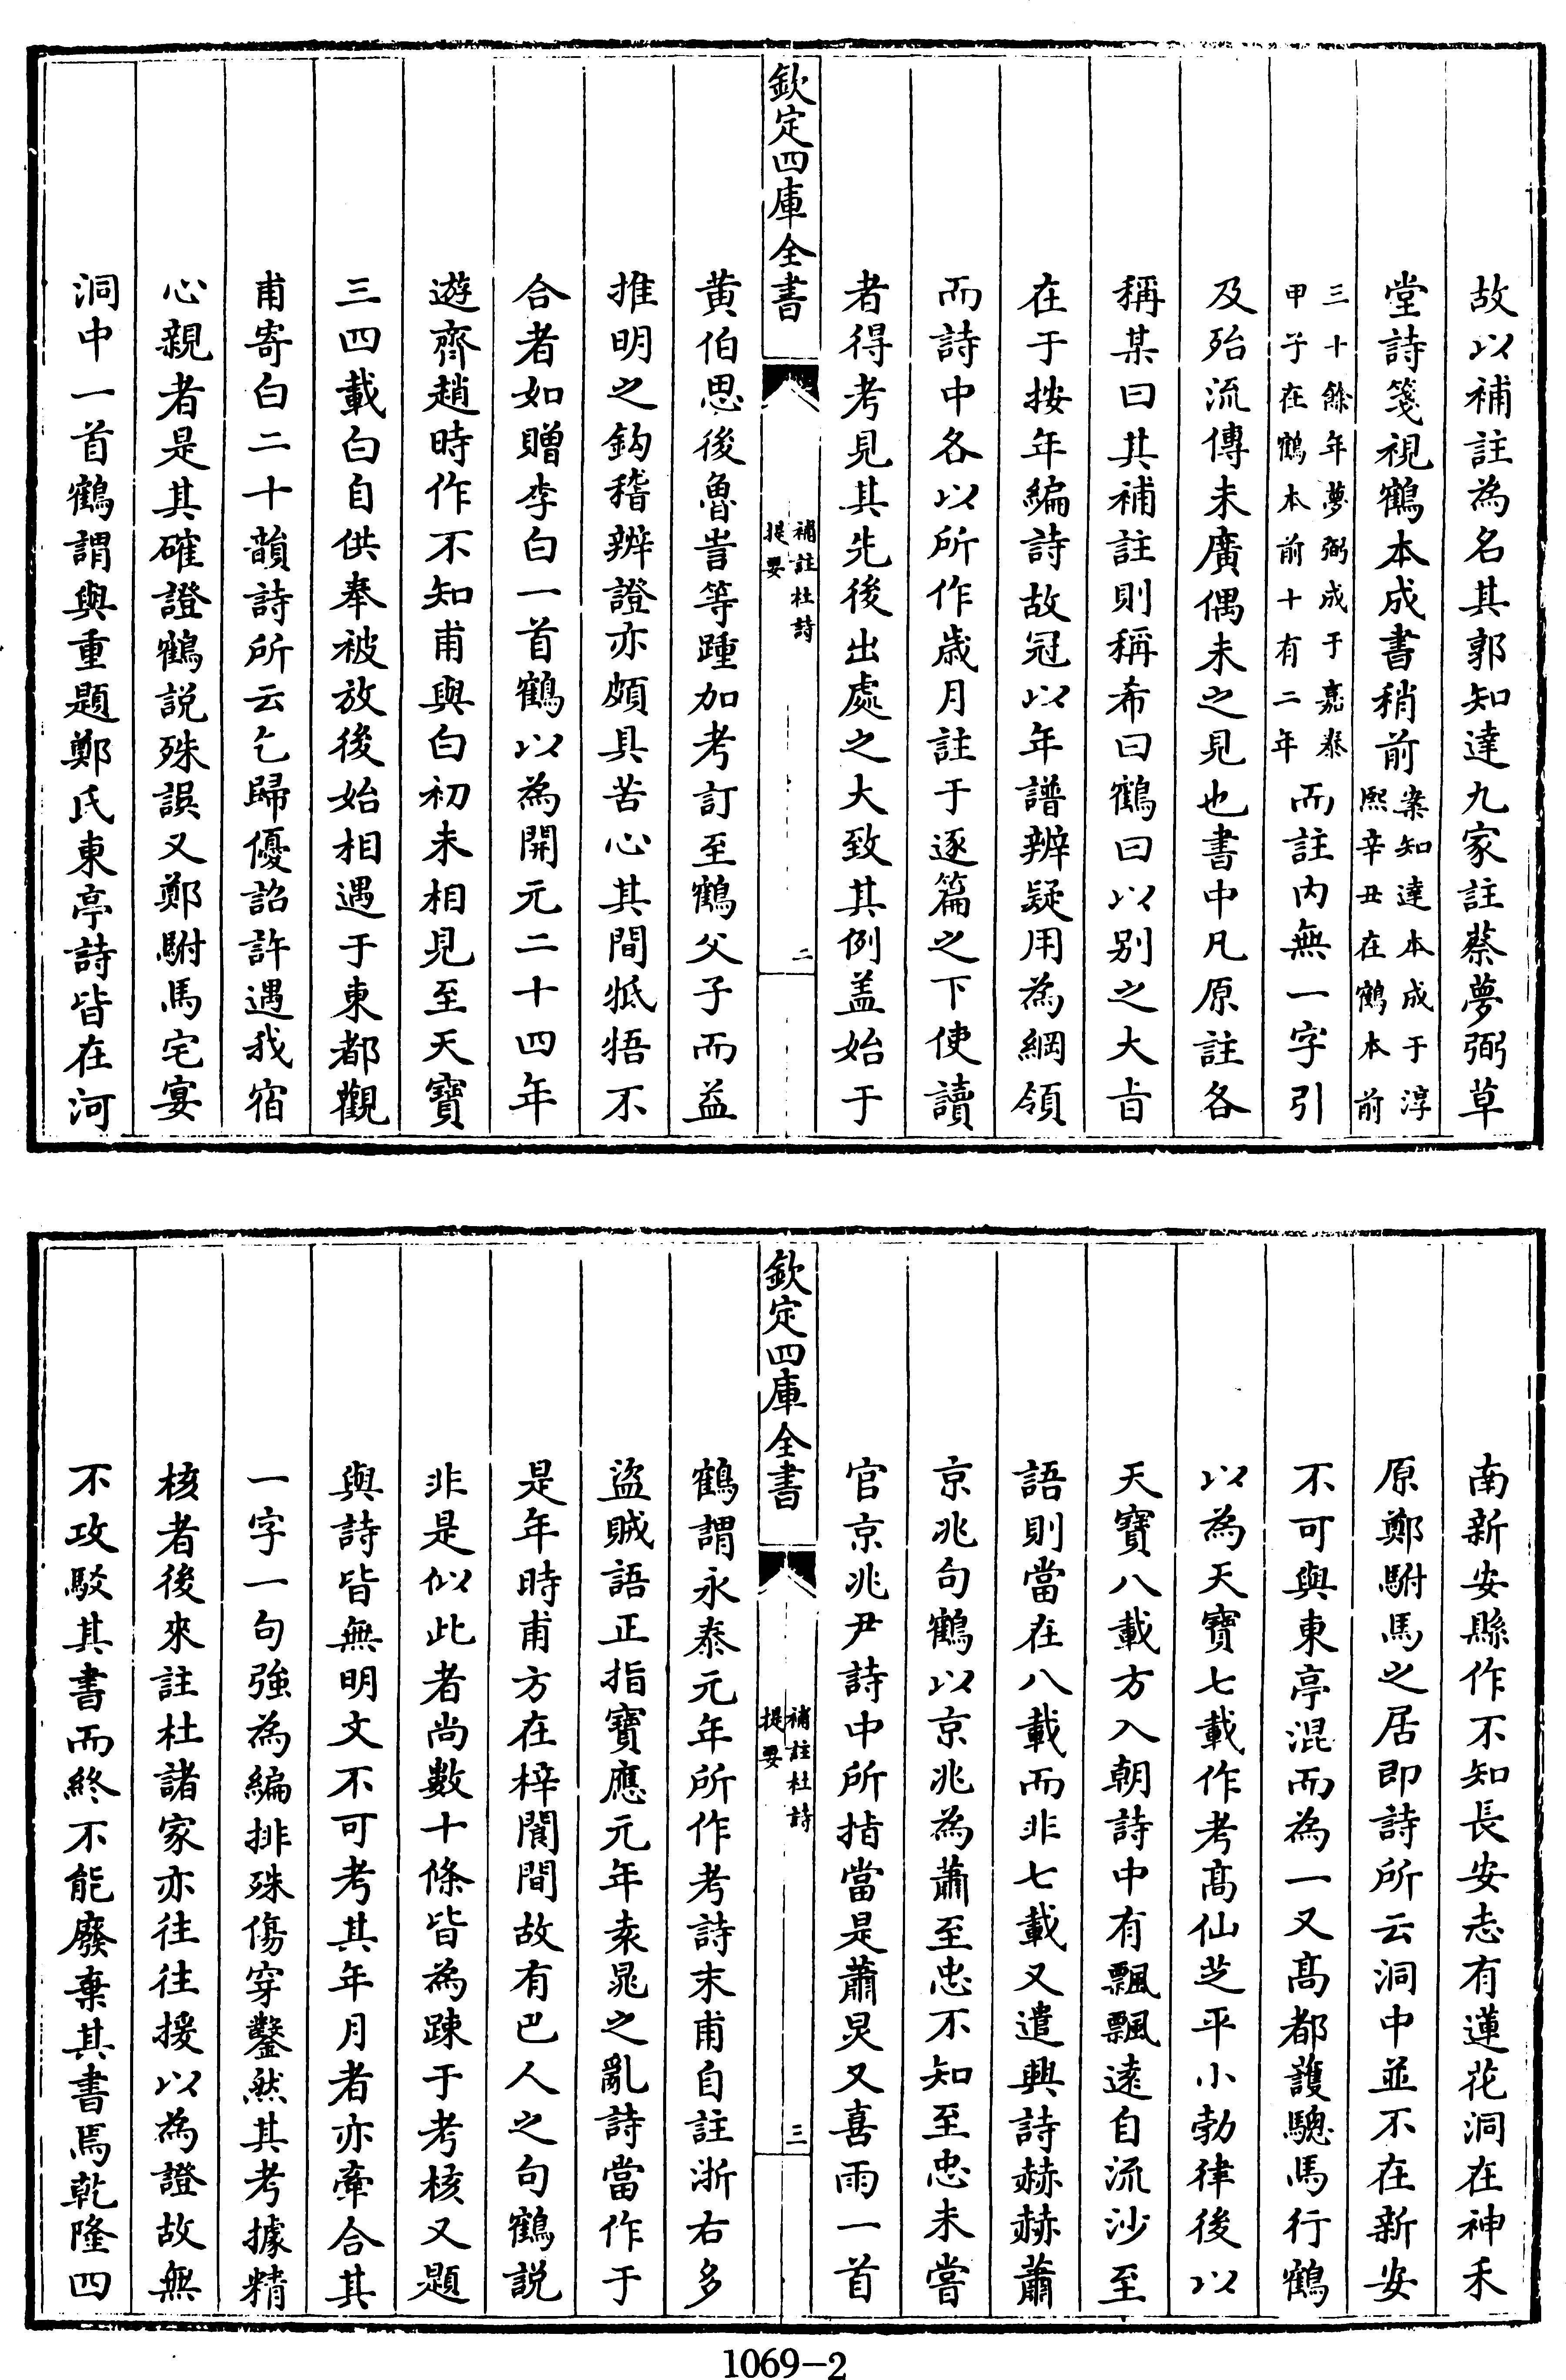 故以補註為名其郭知達九家註蔡夢弼草
堂詩箋視鶴本成書稍前案知達本成于淳
熙辛丑在鶴本前
三十餘年夢弼成于嘉泰
甲子在鶴本前十有二年而註内無一字引
及殆流傳未廣偶未之見也書中凡原註各
稱某曰其補註則稱希曰鶴曰以别之大㫖
在于按年編詩故冠以年譜辨疑用為綱領
而詩中各以所作歳月註于逐篇之下使讀
者得考見其先後出處之大致其例盖始于
欽定四庫全書
補註杜詩
提要
二
黄伯思後魯訔等踵加考訂至鶴父子而益
推明之鈎稽辨證亦頗具苦心其間牴牾不
合者如贈李白一首鶴以為開元二十四年
遊齊趙時作不知甫與白初未相見至天寶
三四載白自供奉被放後始相遇于東都觀
甫寄白二十韻詩所云乞歸優詔許遇我宿
心親者是其確證鶴説殊誤又鄭駙馬宅宴
洞中一首鶴謂與重題鄭氏東亭詩皆在河
南新安縣作不知長安志有蓮花洞在神禾
原鄭駙馬之居即詩所云洞中並不在新安
不可與東亭混而為一又髙都護驄馬行鶴
以為天寶七載作考髙仙芝平小勃律後以
天寶八載方入朝詩中有飄飄逺自流沙至
語則當在八載而非七載又遣興詩赫赫蕭
京兆句鶴以京兆為蕭至忠不知至忠未嘗
官京兆尹詩中所指當是蕭炅又喜雨一首
欽定四庫全書
補註杜詩
提要
三
鶴謂永泰元年所作考詩末甫自註浙右多
盜賊語正指寶應元年袁晁之亂詩當作于
是年時甫方在梓閬間故有巴人之句鶴説
非是似此者尚數十條皆為踈于考核又題
與詩皆無明文不可考其年月者亦牽合其
一字一句強為編排殊傷穿鑿然其考據精
核者後來註杜諸家亦往往援以為證故無
不攻駁其書而終不能廢棄其書焉乾隆四
1069-2